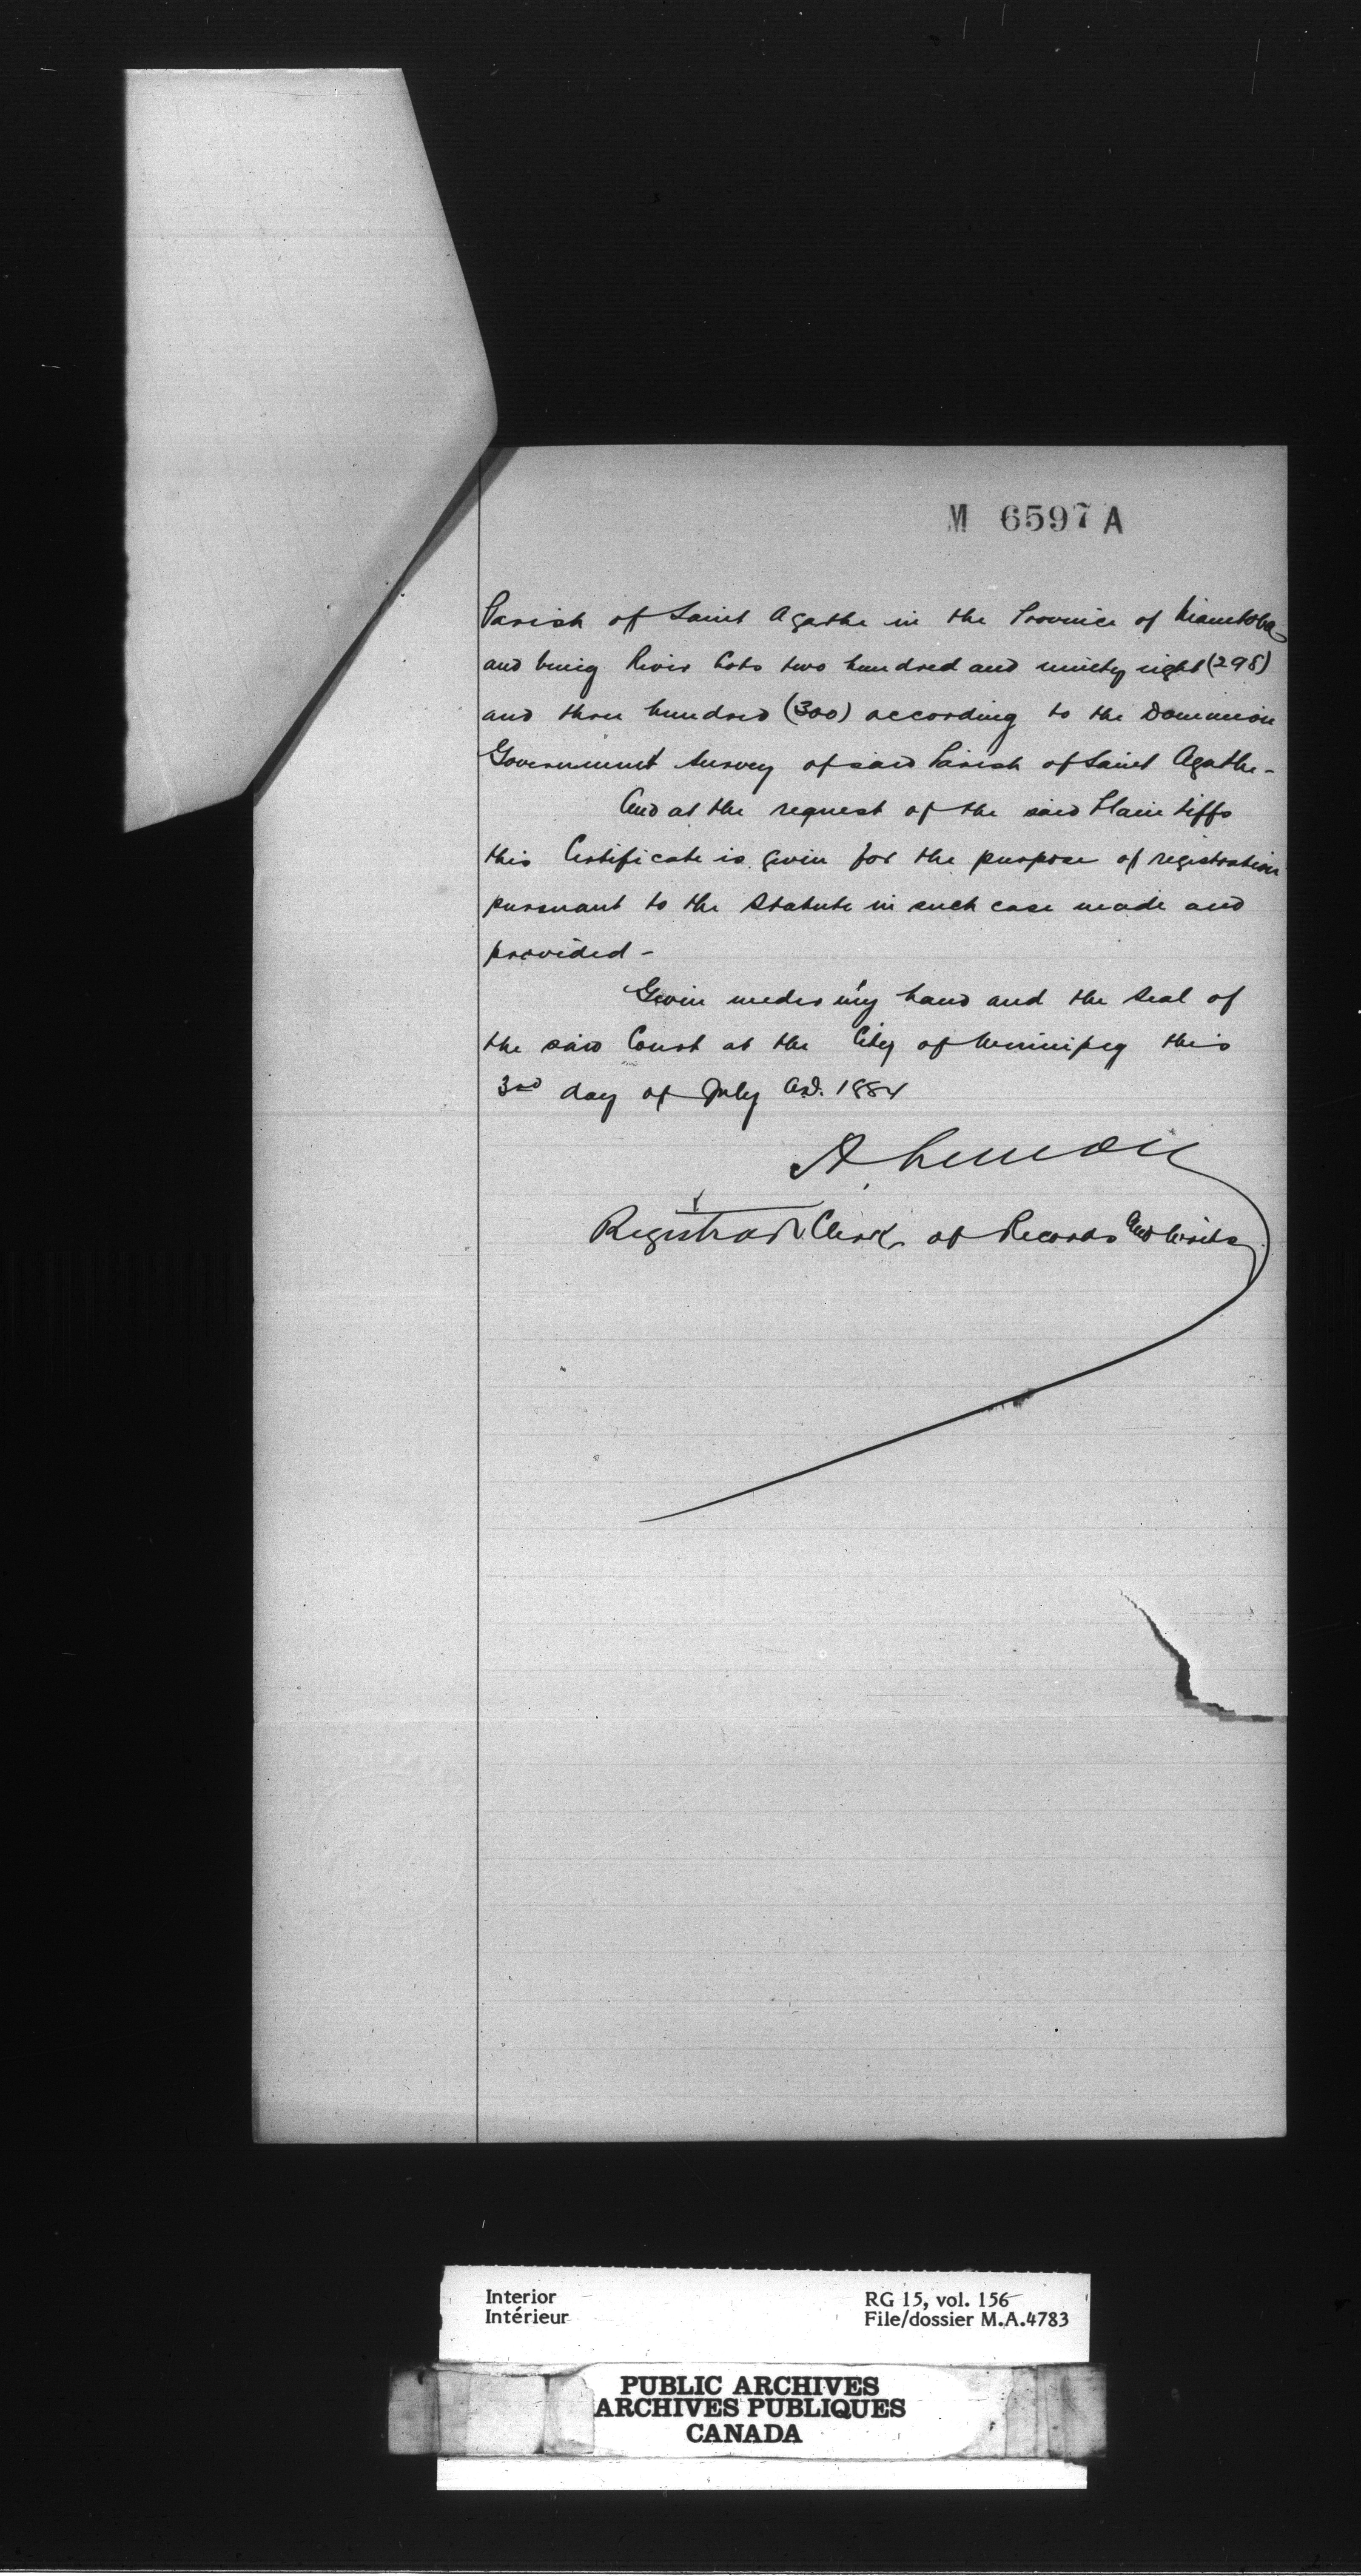 M 6597 A
Parish of Saint Agathe in the Province of Manitoba
and being River Lots two hundred and ninety eight (298)
and three hundred (300) according to the Dominion
Government Survey of said Parish of Saint Agathe -
And at the request of the said Plaintiffs
this Certificate is given for the purpose of registration
pursuant to the Statute in such case made and
provided -
Given under my hand and the Seal of
the said Court at the City of Winnipeg this
3rd day of July A.D. 1884
A
Registrar Clerk of Records and Writs
Interior
Intérieur
RG 15, vol. 156
File/dossier M.A.4783
PUBLIC ARCHIVES
ARCHIVES PUBLIQUES
CANADA